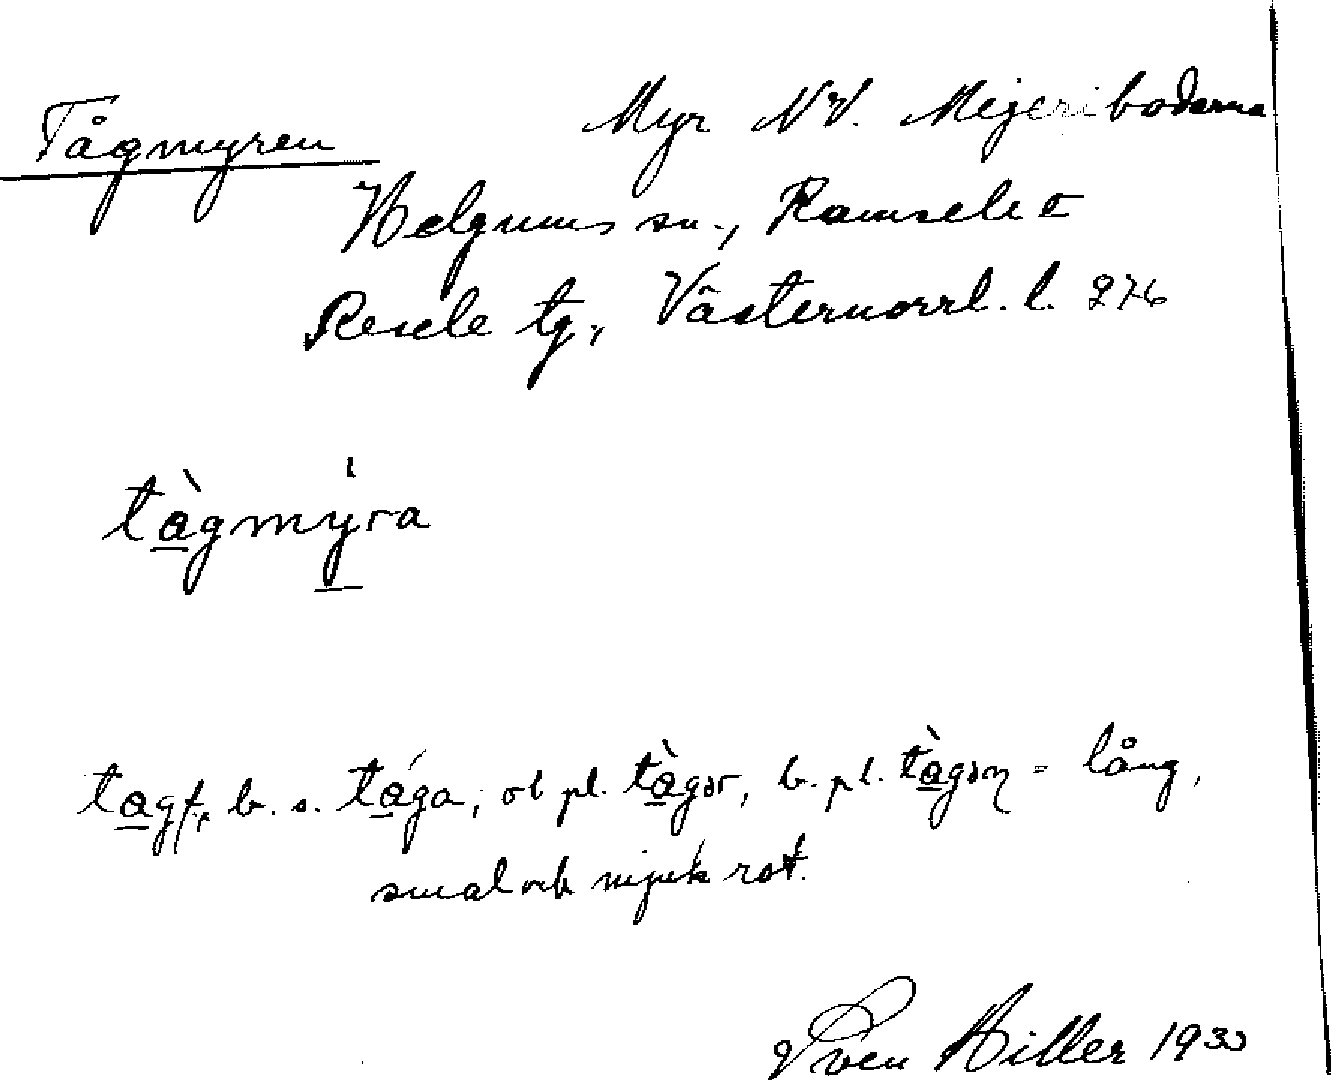 Tågmyren Myr NV. Mejeribodarna
Helgums sn., Ramsele o
Resele tg., Västernorrl. l. 276
tàgmýra
tag f., b. s. tága, ob pl. tàgər, b. pl. tàgəṇ = lång,
smal och mjuk rot.
Sven Hiller 1933